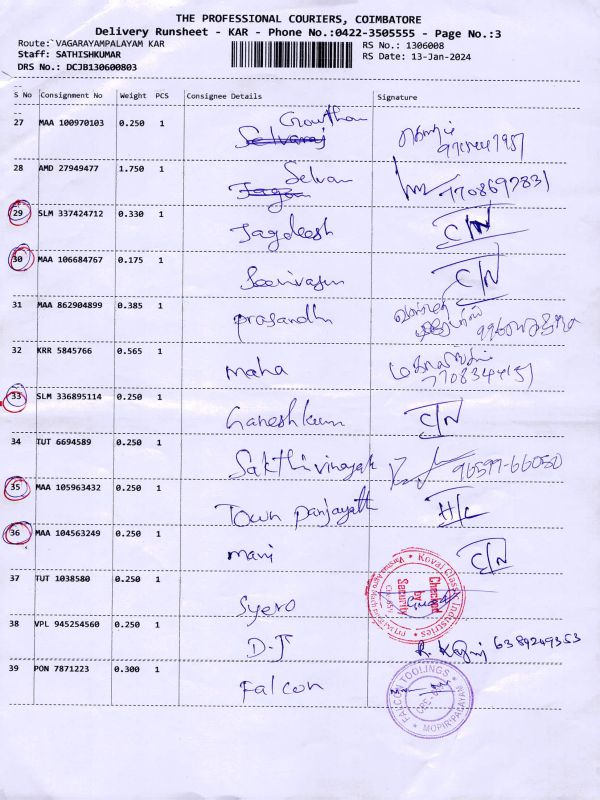 THE PROFESSIONAL COURIERS, COIMBATORE
Delivery Runsheet - KAR - Phone No.:0422-3505555 - Page No.:3
Route: VAGARAYAMPALAYAM KAR
RS No.: 1306008
Staff: SATHISHKUMAR
RS Date: 13-Jan-2024
DRS No.: DCJB130600803
S No Consignment No Weight PCS Consignee Details Signature
27 MAA 100970103 0.250 1 Selvaraj Gowtham
28 AMD 27949477 1.750 1 Selvam 7708697831
29 SLM 337424712 0.330 1 Jagdeesh C/N
30 MAA 106684767 0.175 1 Seenivasan C/N
31 MAA 862904899 0.385 1 prasandh
32 KRR 5845766 0.565 1 maha 7708344151
33 SLM 336895114 0.250 1 Ganeshkum C/N
34 TUT 6694589 0.250 1 Sakthivinayak 96597-66050
35 MAA 105963432 0.250 1 Town panjayath H/C
36 MAA 104563249 0.250 1 mani C/N
37 TUT 1038580 0.250 1 Syero
Checked by Security
Kovai Classic Industries
38 VPL 945254560 0.250 1 D.J 6384249353
39 PON 7871223 0.300 1 Falcon
FALCON TOOLINGS
CBE